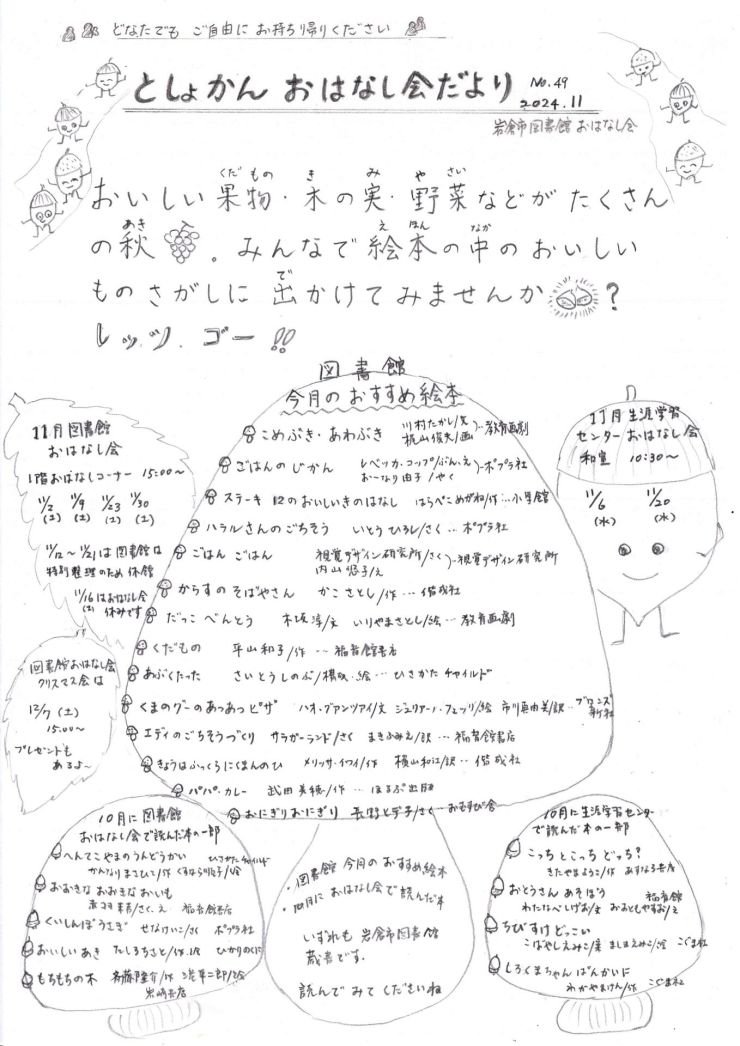 どなたでも ご自由に お持ち帰りください
としょかん おはなし会だより No.49
2024.11
岩倉市図書館 おはなし会
おいしい果物・木の実・野菜などがたくさん
くだもの き み やさい
の秋。みんなで絵本の中のおいしい
あき えほん なか
ものさがしに出かけてみませんか?
で
レッツ、ゴー!!
図書館
今月のおすすめ絵本
こめぶき・あわぶき 川村たかし/文 梶山俊夫/画 …教育画劇
ごはんのじかん レベッカ・コッブ/ぶん・え おーなり由子/やく …ポプラ社
ステーキ 12のおいしいきのはなし はらぺこめがね/作…小学館
ハラルさんのごちそう いとうひろし/さく…ポプラ社
ごはん ごはん 視覚デザイン研究所/さく 内山悠子/え …視覚デザイン研究所
からすのそばやさん かこさとし/作…偕成社
だっこ べんとう 木坂涼/文 いりやまさとし/絵…教育画劇
くだもの 平山和子/作…福音館書店
あぶくたった さいとうしのぶ/構成・絵…ひさかたチャイルド
くまのグーのあつあつピザ ハオ・グアンツァイ/文 ジュリアーノ・フェッリ/絵 市川真由美/訳…ブロンズ新社
エディのごちそうづくり サラガーランド/さく まきふみえ/訳…福音館書店
きょうはふっくらにくまんのひ メリッサ・イワイ/作 横山和江/訳…偕成社
パパ・カレー 武田美穂/作…ほるぷ出版
おにぎりおにぎり 長野ヒデ子/さく…おむすび舎
11月図書館
おはなし会
1階おはなしコーナー 15:00〜
11/2 11/9 11/23 11/30
(土) (土) (土) (土)
11/12〜11/21は図書館は
特別整理のため休館
11/16はおはなし会
(土) 休みです
図書館おはなし会
クリスマス会は
12/7(土)
15:00〜
プレゼントも
あるよ〜
11月生涯学習
センターおはなし会
和室 10:30〜
11/6 11/20
(水) (水)
10月に図書館
おはなし会で読んだ本の一部
へんてこやまのうんどうかい ひさかたチャイルド
かんなりまさひこ/作
おおきな おおきな おいも
赤羽末吉/さく、え 福音館書店
くいしんぼうさぎ せなけいこ/さく ポプラ社
おいしいあき たしろちさと/作 ひかりのくに
もちもちの木 斎藤隆介/作 滝平二郎/絵
岩崎書店
・図書館 今月のおすすめ絵本
・10月に おはなし会で読んだ本
いずれも 岩倉市図書館
蔵書です。
読んでみてくださいね
10月に生涯学習センター
で読んだ本の一部
こっちとこっち どっち?
きたやまようこ/作 あすなろ書房
おとうさん あそぼう 福音館
わたなべしげお/文 おおともやすお/え
ちびすけどっこい
こばやしえみこ/案 ましませつこ/絵 こぐま社
しろくまちゃん ぱんかいに
わかやまけん/作 こぐま社